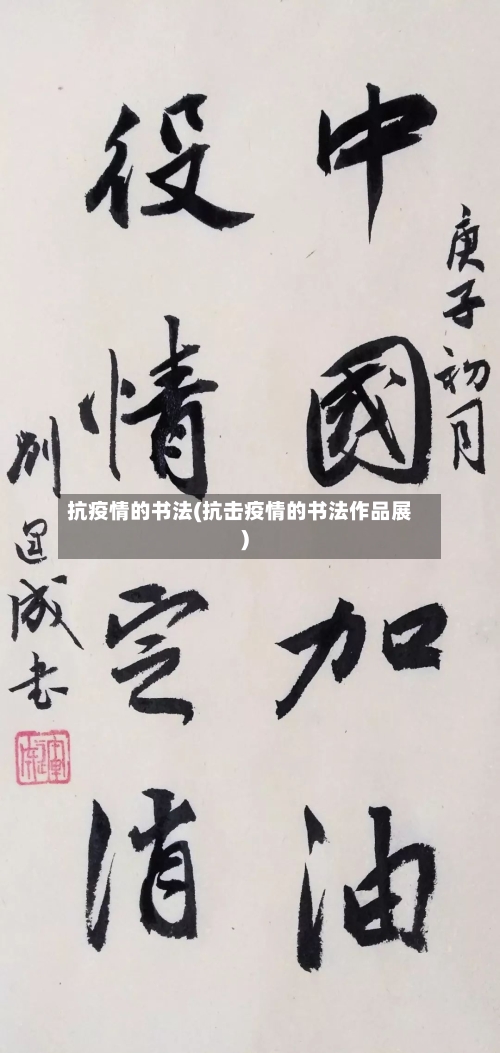 庚子初月
中國加油
役情定消
成书
抗疫情的书法(抗击疫情的书法作品展
)